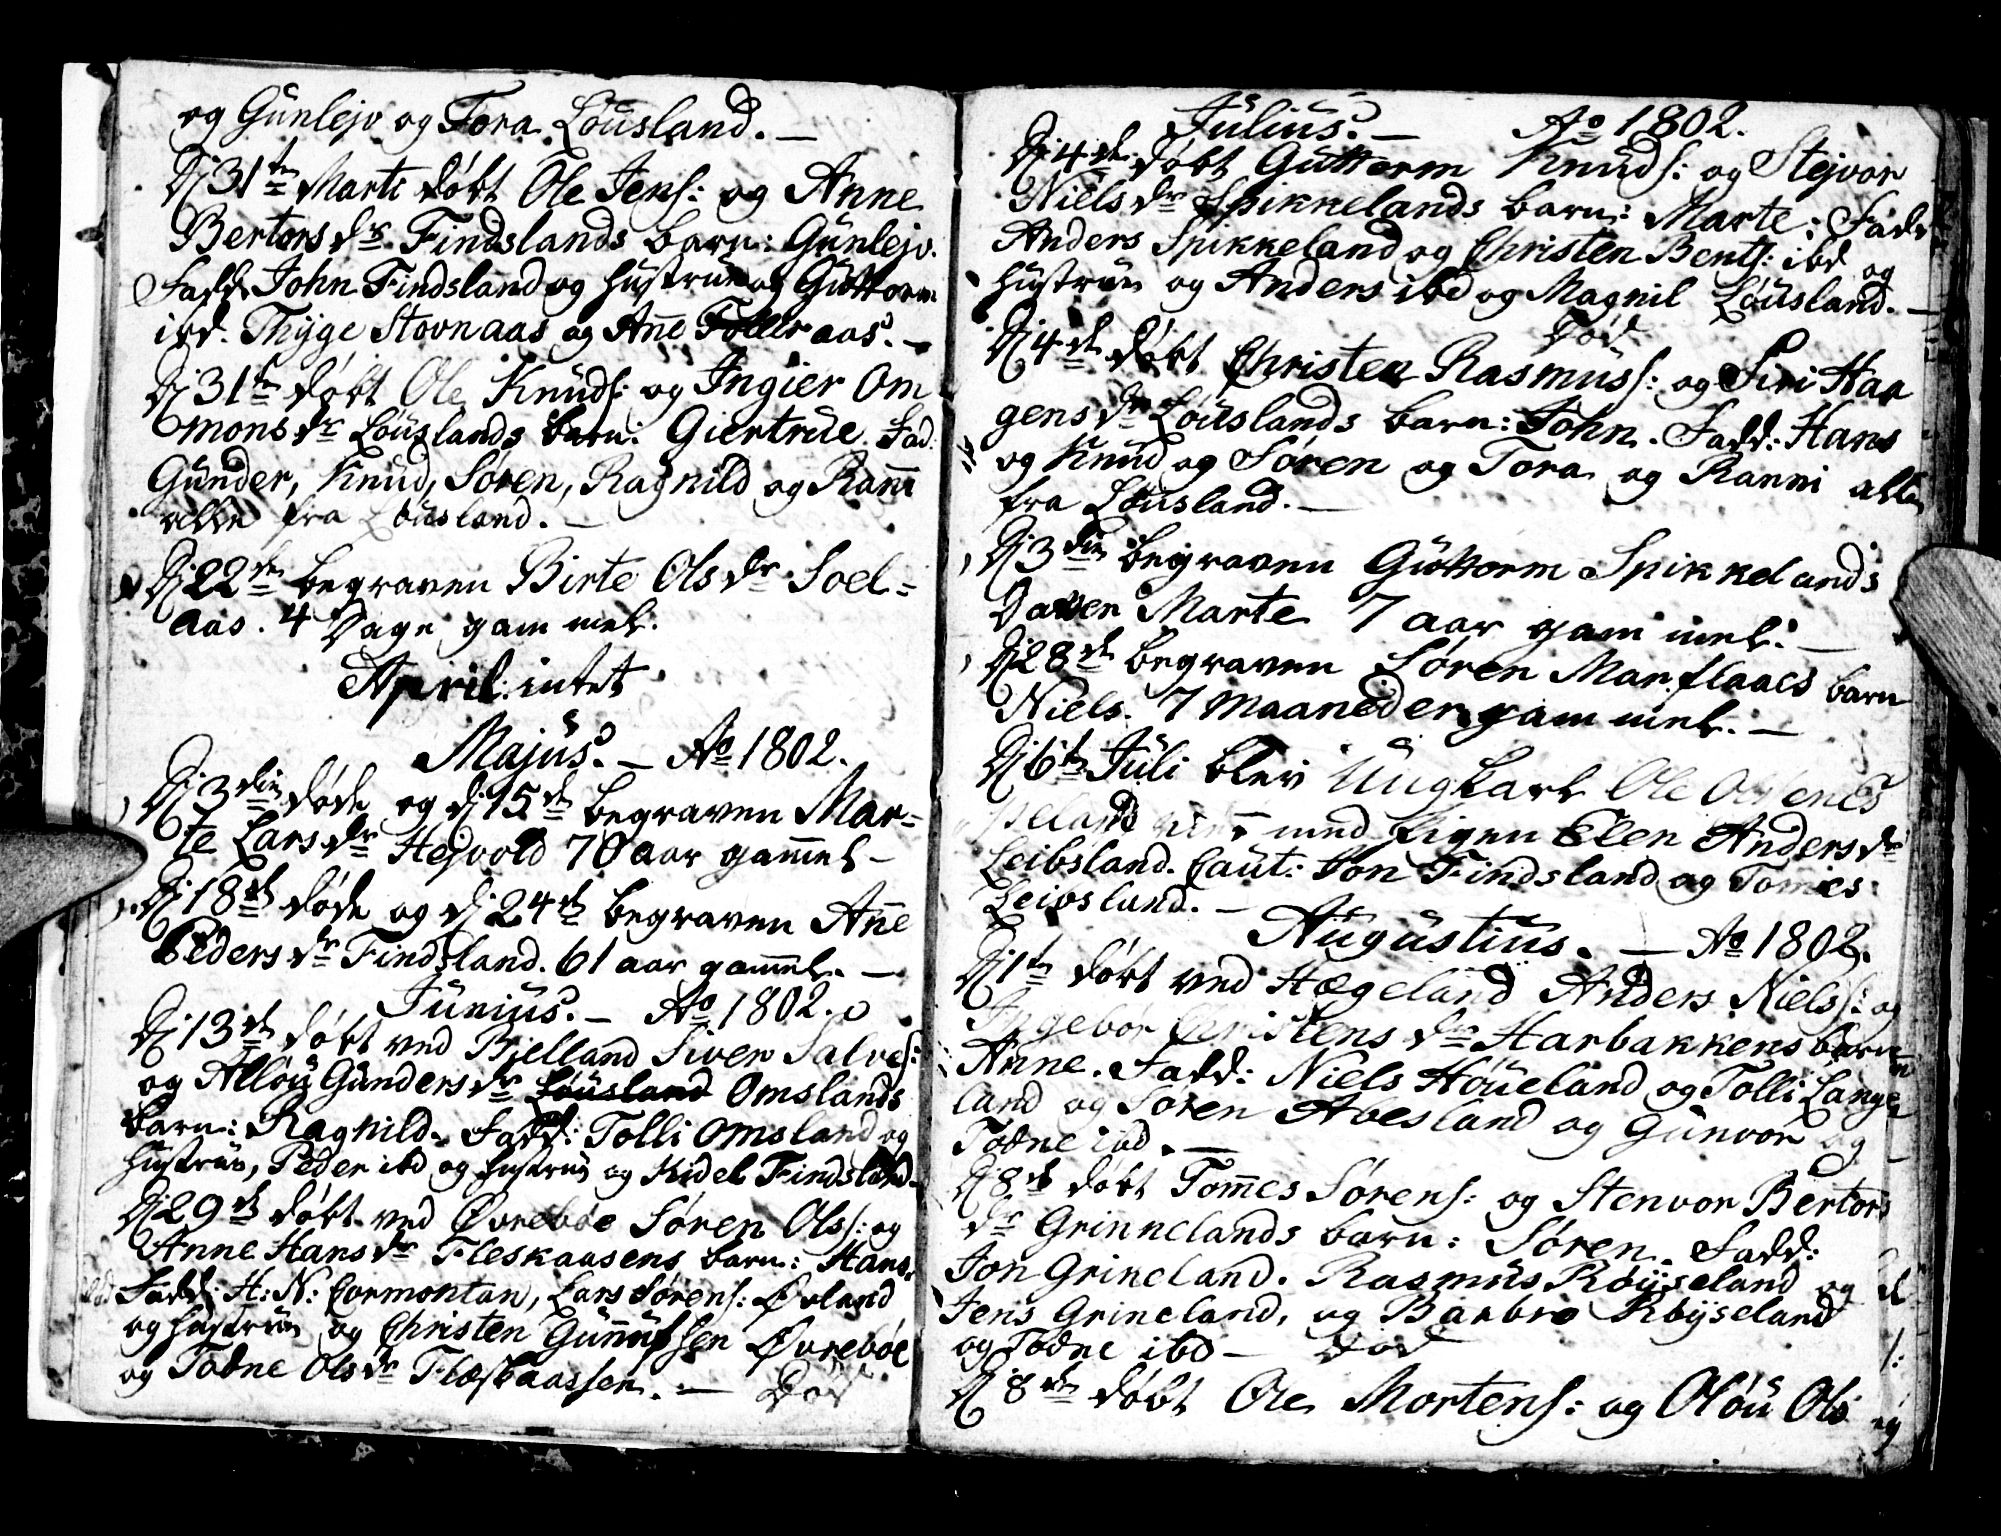 og Gunlejv og Tora Løusland. —
Dj 31te Marti døbt Ole Jens: og Anne
Bertors dr Findslands barn: Gunlejv.
Fadd. John Findsland og hustrue og Guttorm
ibd. Thyge Stovnaas og Añe Tolleraas. —
Dj 31te døbt Ole Knuds: og Ingier Om
mons dr Løuslands barn: Giertrue. Fad.
Gunder, Knud, Søren, Ragnild og Rañi
alle fra Løusland. —
Dj 22de begraven Birte Ols dr Soel=
aas. 4 Dage gammel.
April: intet
Majus. — Ao 1802.
Dj 3die døde og dj 15de begraven Mar=
te Lars dr Hejvold 70 aar gam̄el —
Dj 18de døde og dj 24de begraven Añe
Peders dr Findsland. 61 aar gam̄el. —
Junius. — Ao 1802.
Dj 13de døbt ved Bjelland Siver Salves:
og Alløu Gunders dr Løusland Omslands
barn: Ragnild. Fadd: Tolli Omsland og
hustrue, Peder ibd og hustrue og Kidel Findsland
Dj 29de døbt ved Øvrebøe Søren Ols: og
Anne Hans dr Fleskaasens barn: Hans.
Fadd: H: N: Cormontan, Lars Sørens: Øvland
og hustrue og Christen Gunnufsen Øvrebøe
og Todne Ols dr Flæskaassen. — Død
Julius. — Ao 1802.
Dj 4de døbt Guttorm Knuds: og Stejvor
Niels dr Spikkelands barn: Marte: Fadd
Anders Spikkeland og Christen Bents: ibd og
hustrue og Anders ibd og Magnil Løusland. —
Død
Dj 4de døbt Christen Rasmus: og Siri Haa
gens dr Løuslands barn: John. Fadd: Hans
og Knud og Søren og Tora og Ranni alle
fra Løusland. —
Dj 3die begraven Guttorm Spikkelands
Datter Marte 7 aar gammel. —
Dj 28de begraven Søren Manflaaes barn
Niels. 7 Maaneder gammel. —
Dj 6te Juli blev Ungkarl Ole
med Pigen Elen Anders dr
Leibsland. Caut: Jon Findsland og Tomies
Leibsland. —
Augustius. — Ao 1802.
Dj 1te døbt ved Hægeland Anders Niels: og
Ingebor Christens dr Harbakkens barn
Anne. Fadd: Niels Høueland og Tolli Lange
land og Søren Aaesland og Gunvor og
Todne ibd. —
Dj 8de døbt Tom̄es Sørens: og Stenvor Bertors
dr Grinnelands barn: Søren. Fadd:
Jon Grineland. Rasmus Røyseland og
Jens Grineland, og Barbro Røyseland
og Todne ibd — Død
Dj 8de døbt Ole Mortens: og Oløu Ols